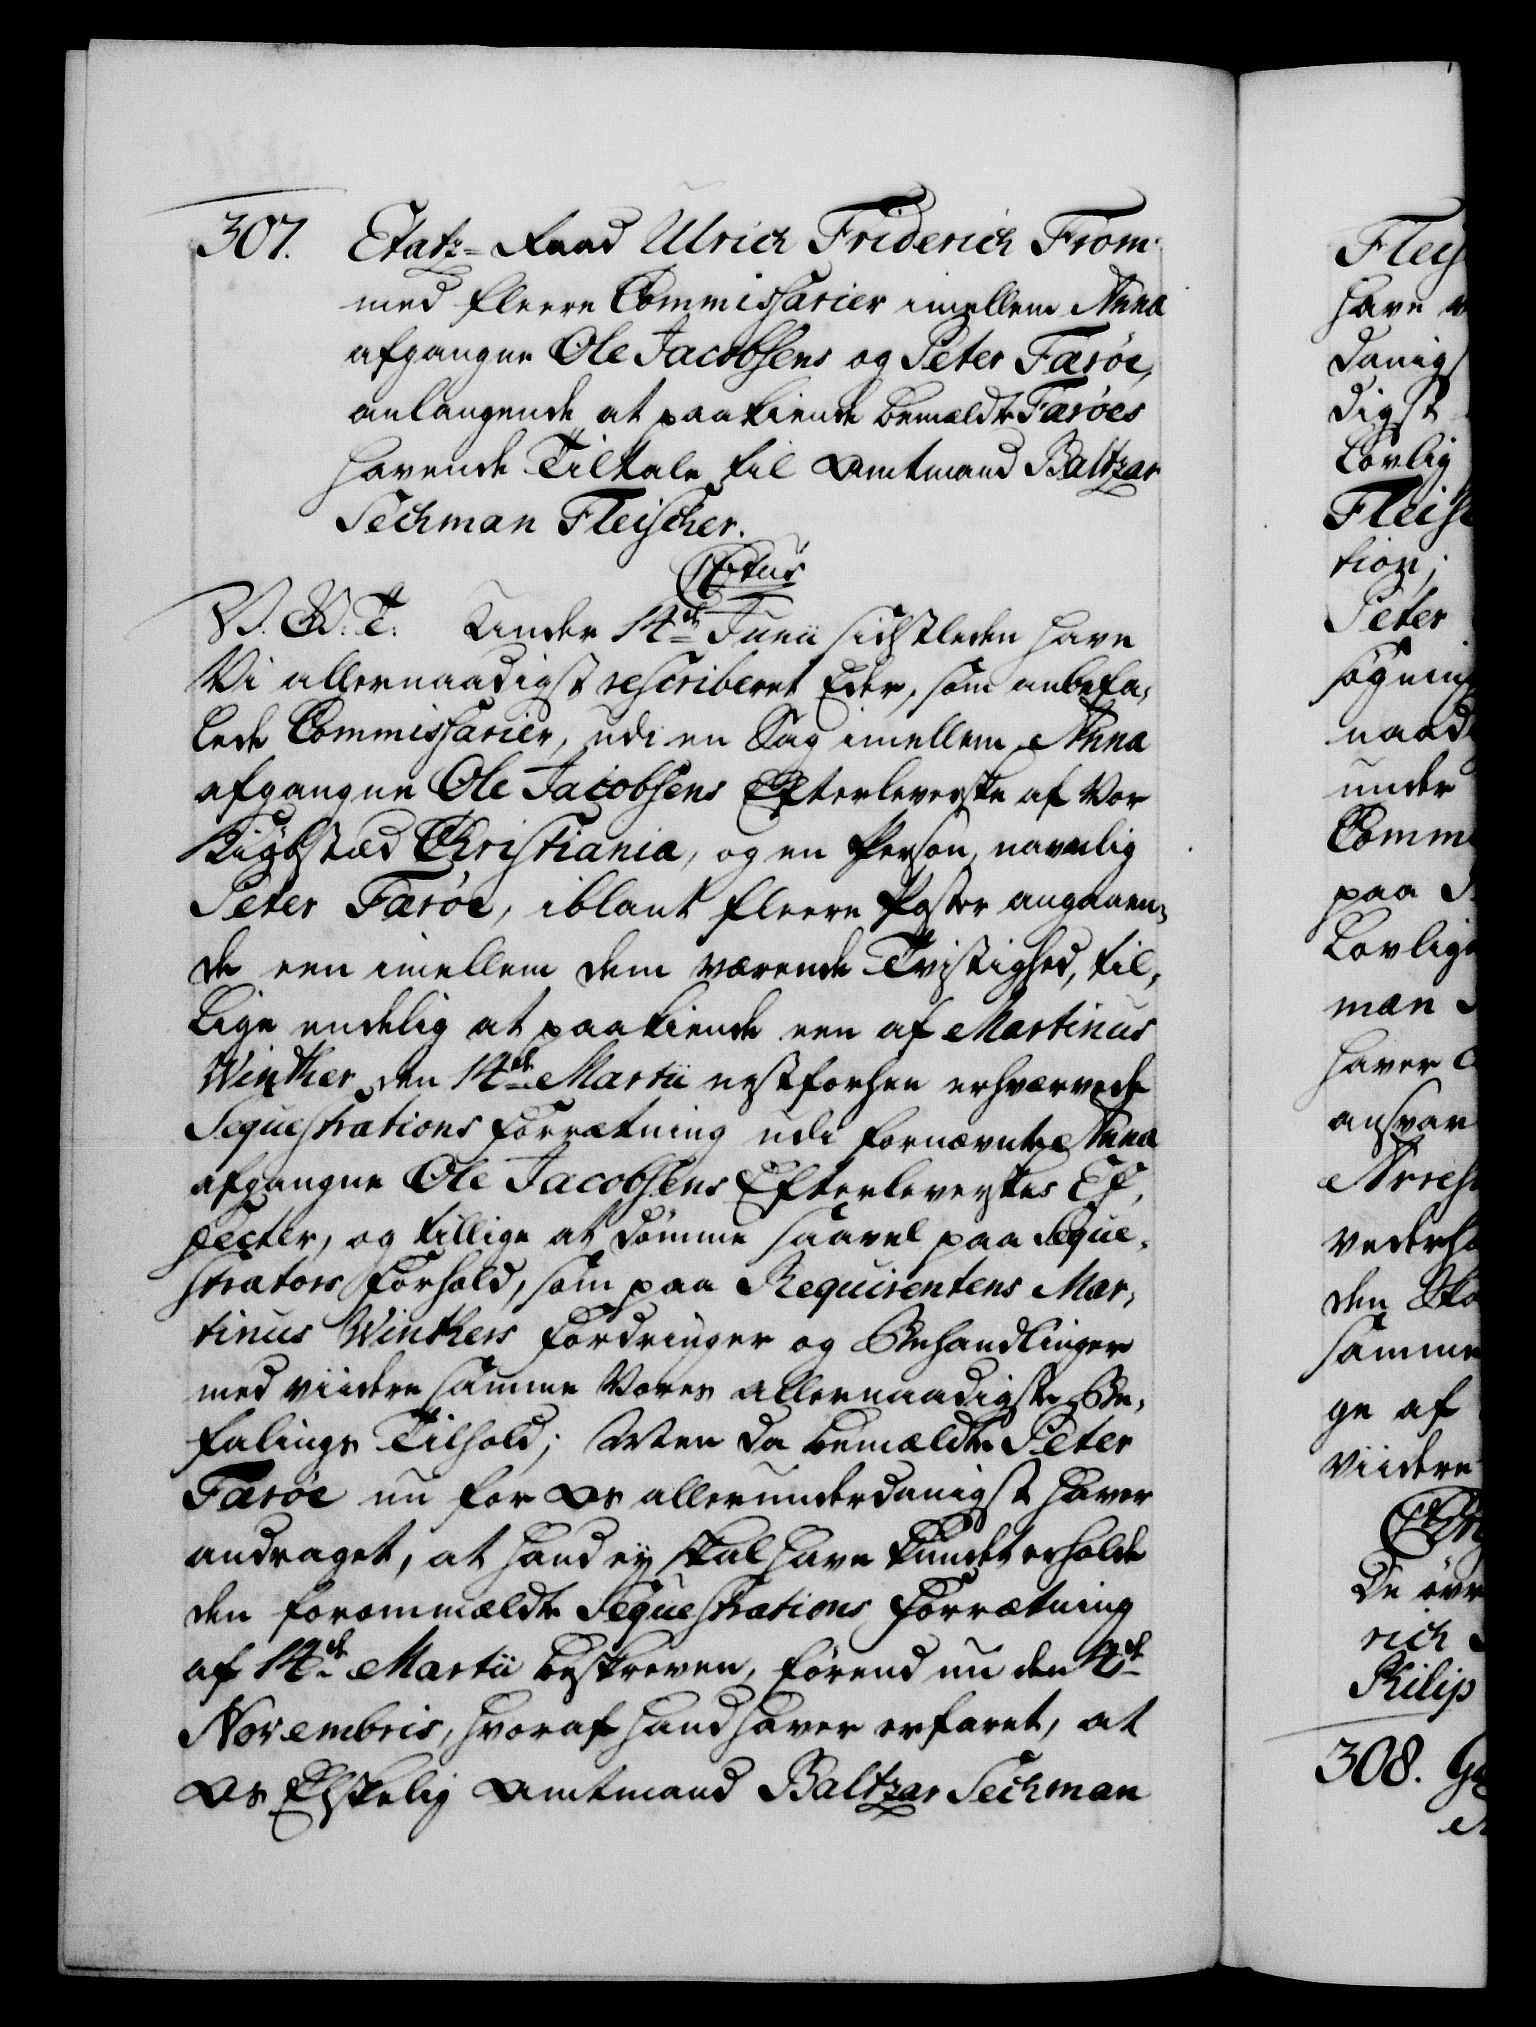 307. Etatz-Raad Ulrich Friderich From
med fleere Commissarier imellem Anna
afgangne Ole Jacobsens og Peter Færöe,
anlangende at paakiende bemældte Færöes
havende Tiltale til Amtmand Baltzar
Sechman Fleischer.
V. G. T. Under 14de Junii sidstleden have
Vi allernaadigst rescriberet Eder, som anbefa-
lede Commissarier, udi en Sag imellem Anna
afgangne Ole Jacobsens Efterleverske af Vor
Kiøbstæd Christiania, og en Person, navnlig
Peter Færöe, iblant fleere Poster angaaen-
de een imellem dem værende Tvistighed, til-
lige endelig at paakiende een af Martinus
Winther den 14de Martii nestforhen erhvervede
Sequestrations Forretning udi fornævnte Anna
afgangne Ole Jacobsens Efterleverskes Ef-
fecter, og tillige at dömme saavel paa Seque-
strators Forhold, som paa Requirentens Mar-
tinus Winthers Fordringer og Behandlinger
med viidere samme Vores allernaadigste Be-
falings Tilhold; Men da bemældte Peter
Færöe nu for Os allerunderdanigst haver
andraget, at hand ey skal have kundet erholde
den forommældte Sequestrations Forretning
af 14de Martii beskreven, förend nu den 4de
Novembris, hvoraf hand haver erfaret, at
Os Elskelig Amtmand Baltzar Sechman
Fleis
have
danigs
digst
Lovlig
Fleis
tion;
Peter
søgning
naad
under
Comm
paa
Lovlig
man
haver
ansvar
Arrest
vederh
den
samme
ge af
viidere
De övr
rich
Philip
308.